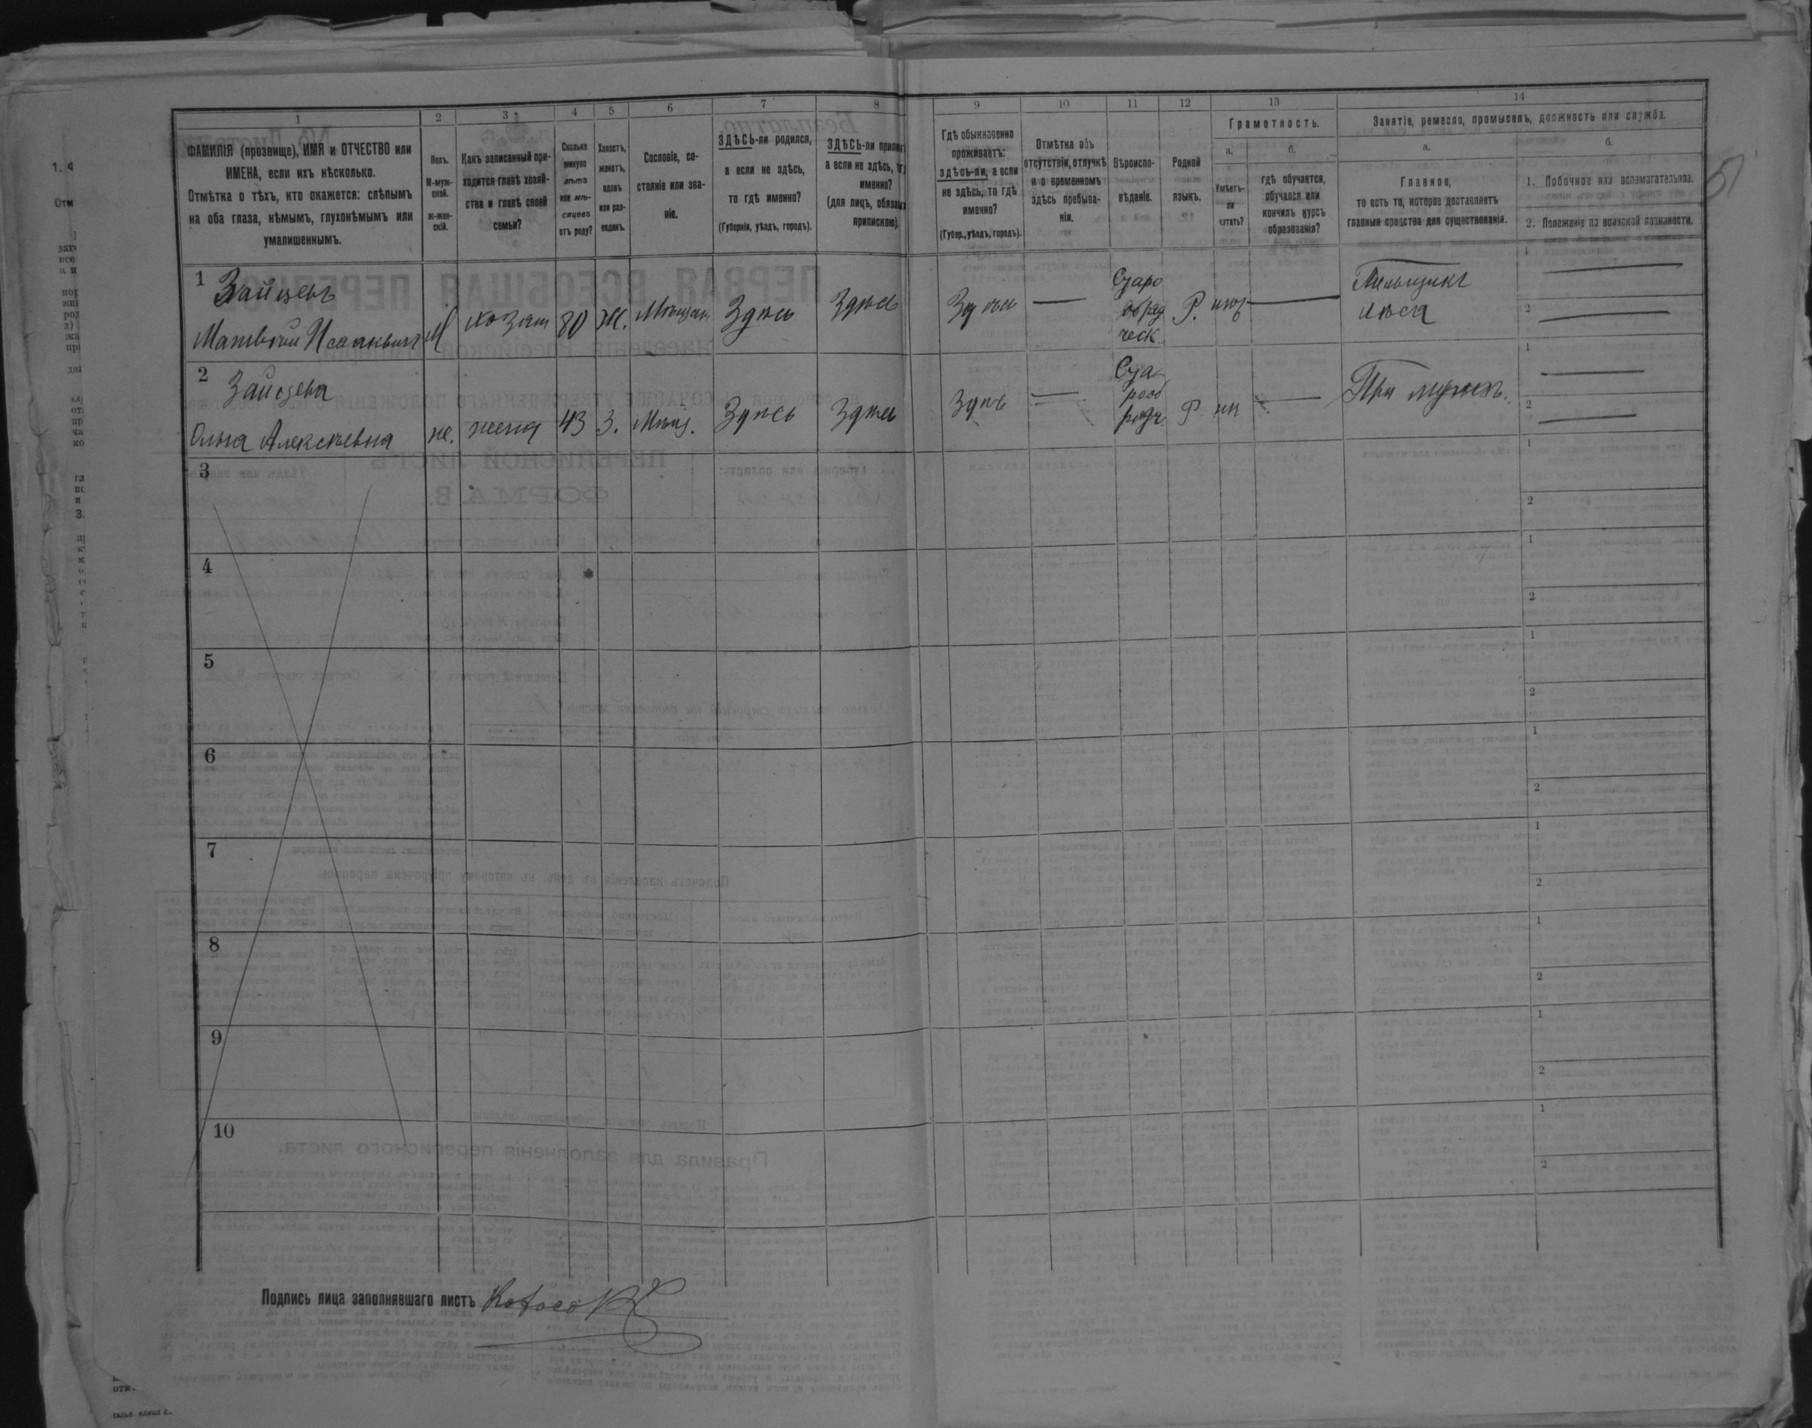 1 2 3 4 5 6 7 8 9 10 11 12 13 14
ФАМИЛІЯ (прозвище), ИМЯ и ОТЧЕСТВО или
ИМЕНА, если ихъ нѣсколько.
Отмѣтка о тѣхъ, кто окажется: слѣпымъ
на оба глаза, нѣмымъ, глухонѣмымъ или
умалишеннымъ.
Полъ.
М-муж-
ской.
ж-жен-
скій.
Какъ записанный при-
ходится главѣ хозяй-
ства и главѣ своей
семьи?
Сколько
минуло
лѣтъ
или мѣ-
сяцевъ
отъ роду?
Холостъ,
женатъ,
вдовъ
или раз-
веденъ.
Сословіе, со-
стояніе или зва-
ніе.
ЗДѢСЬ-ли родился,
а если не здѣсь,
то гдѣ именно?
(Губернія, уѣздъ, городъ).
ЗДѢСЬ-ли
а если не здѣсь,
именно?
(для лицъ,
припискою)
Гдѣ обыкновенно
проживаетъ:
здѣсь-ли, а если
не здѣсь, то гдѣ
именно?
(Губер., уѣздъ, городъ).
Отмѣтка объ
отсутствіи, отлучкѣ
и о временномъ
здѣсь пребыва-
ніи.
Вѣроиспо-
вѣданіе.
Родной
языкъ.
Грамотность.
а.
Умѣетъ-
ли
читать?
б.
гдѣ обучается,
обучался или
кончилъ курсъ
образованія?
Занятіе, ремесло, промыселъ, должность или служба.
а.
Главное,
то есть то, которое доставляетъ
главныя средства для существованія.
б.
1. Побочное или вспомогательное.
2. Положеніе по воинской повинности.
1 Зайцевъ
Матвѣй Исааковичъ М хозяин 80 Ж. Мѣщан. Здѣсь Здѣсь Здѣсь — Старо
обряд
ческ. Р. —
Пильщикъ
лѣса
1 —
2 —
2 Зайцева
Ольга Алексѣевна ж. жена 43 З. Мѣщ. Здѣсь Здѣсь Здѣсь — Ста
рооб
рядч Р. —
При мужѣ.
1 —
2 —
3
1
2
4
1
2
5
1
2
6
1
2
7
1
2
8
1
2
9
1
2
10
1
2
Подпись лица заполнявшаго листъ